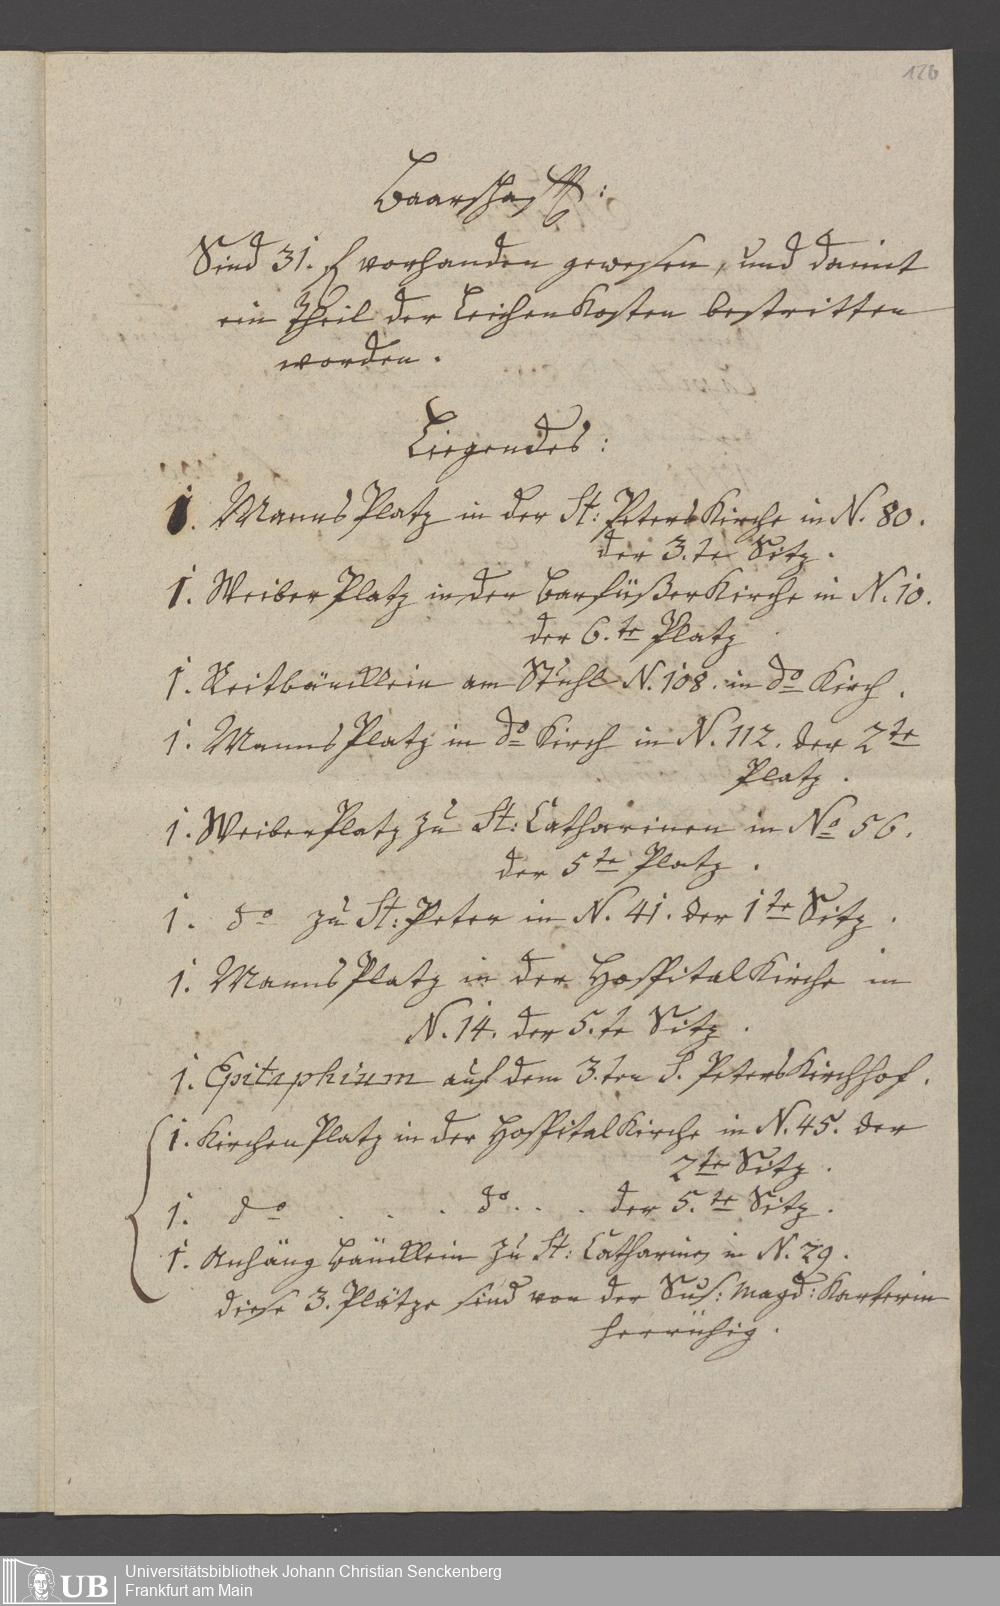 126
Baarschafft:
Sind 31. f vorhanden gewesen, und damit
ein Theil der Leichen Kosten bestritten
worden.
Liegendes:
1. Manns Platz in der St: Peters Kirche in N. 80.
der 3.te Sitz.
1. Weiber Platz in der Barfüßer Kirche in N. 10.
der 6.te Platz
1. Reitbäncklein am Stuhl N. 108. in do Kirch.
1. Manns Platz in do Kirch in N. 112. der 2te
Platz.
1. Weiber Platz zu St: Catharinen in No 56.
der 5te Platz.
1. do zu St: Peter in N. 41. der 1te Sitz.
1. Manns Platz in der Hospital Kirche in
N. 14. der 5.te Sitz.
1. Epitaphium auf dem 3.ten S. Peters Kirchhof.
1. Kirchen Platz in der Hospital Kirche in N. 45. der
2te Sitz.
1. do . . . do . . . der 5.te Sitz.
1. Anhäng Bäncklein zu St: Catharinen in N. 29.
diese 3. Plätze sind von der Sus: Magd:
herrührig.
UB
Universitätsbibliothek Johann Christian Senckenberg
Frankfurt am Main